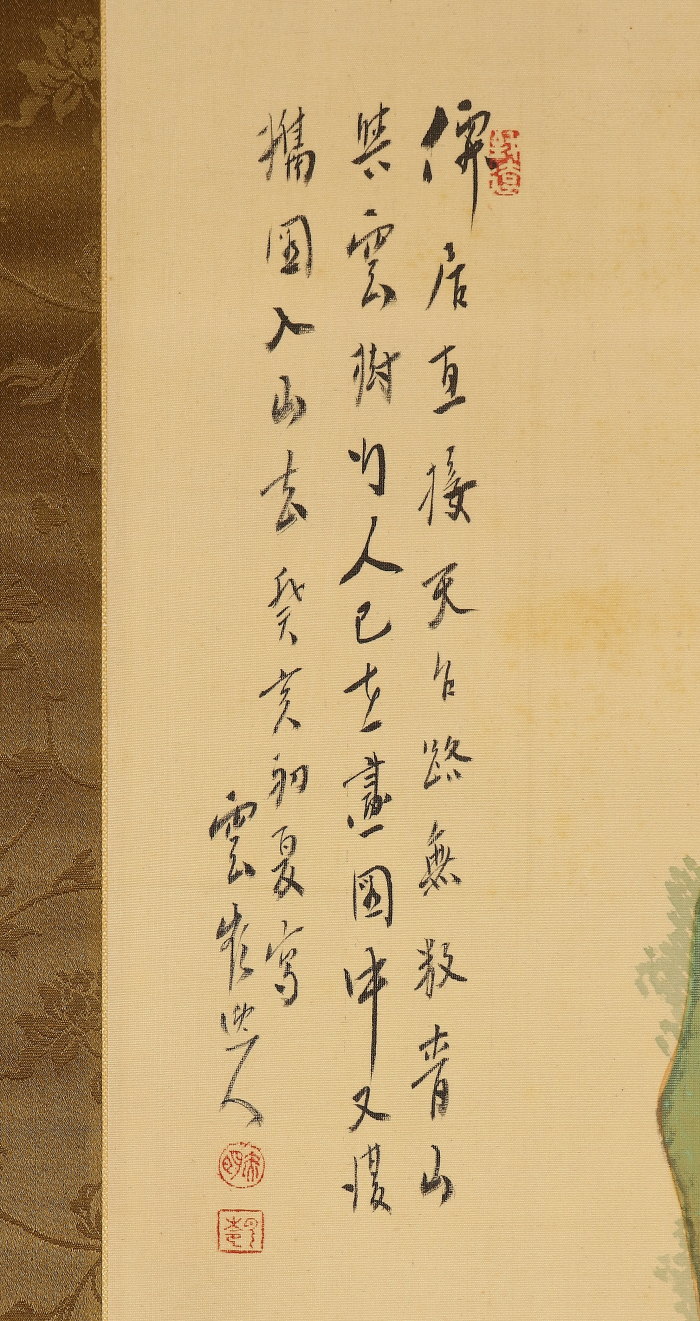 僊居直接天台路無數青山
與雲樹人已在畫圖中又復
攜圖入山去癸亥初夏寫
雲人